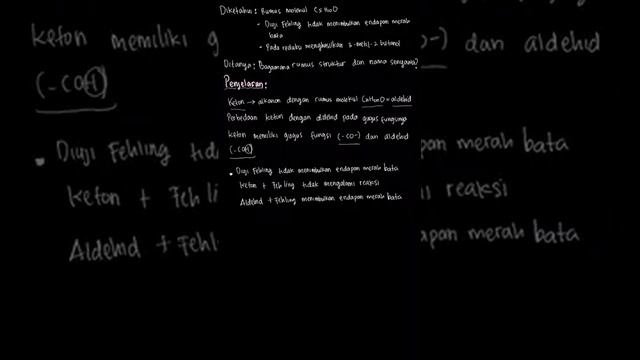 Diketahui: Rumus molekul C5H10O
- Diuji Fehling tidak menimbulkan endapan merah
bata
- Pada reduksi menghasilkan 3-metil-2 butanol
Ditanya: Bagaimana rumus struktur dan nama senyawa?
Penjelasan:
Keton → alkanon dengan rumus molekul CnH2nO = aldehid
Perbedaan keton dengan aldehid pada gugus fungsinya
keton memiliki gugus fungsi (-CO-) dan aldehid
(-COH)
• Diuji Fehling tidak menimbulkan endapan merah bata
keton + Fehling tidak mengalami reaksi
Aldehid + Fehling menimbulkan endapan merah bata
keton memiliki
dan aldehid
(-COH)
• Diuji Fehling
merah bata
keton + Fehling
reaksi
Aldehid + Fehl
endapan merah bata